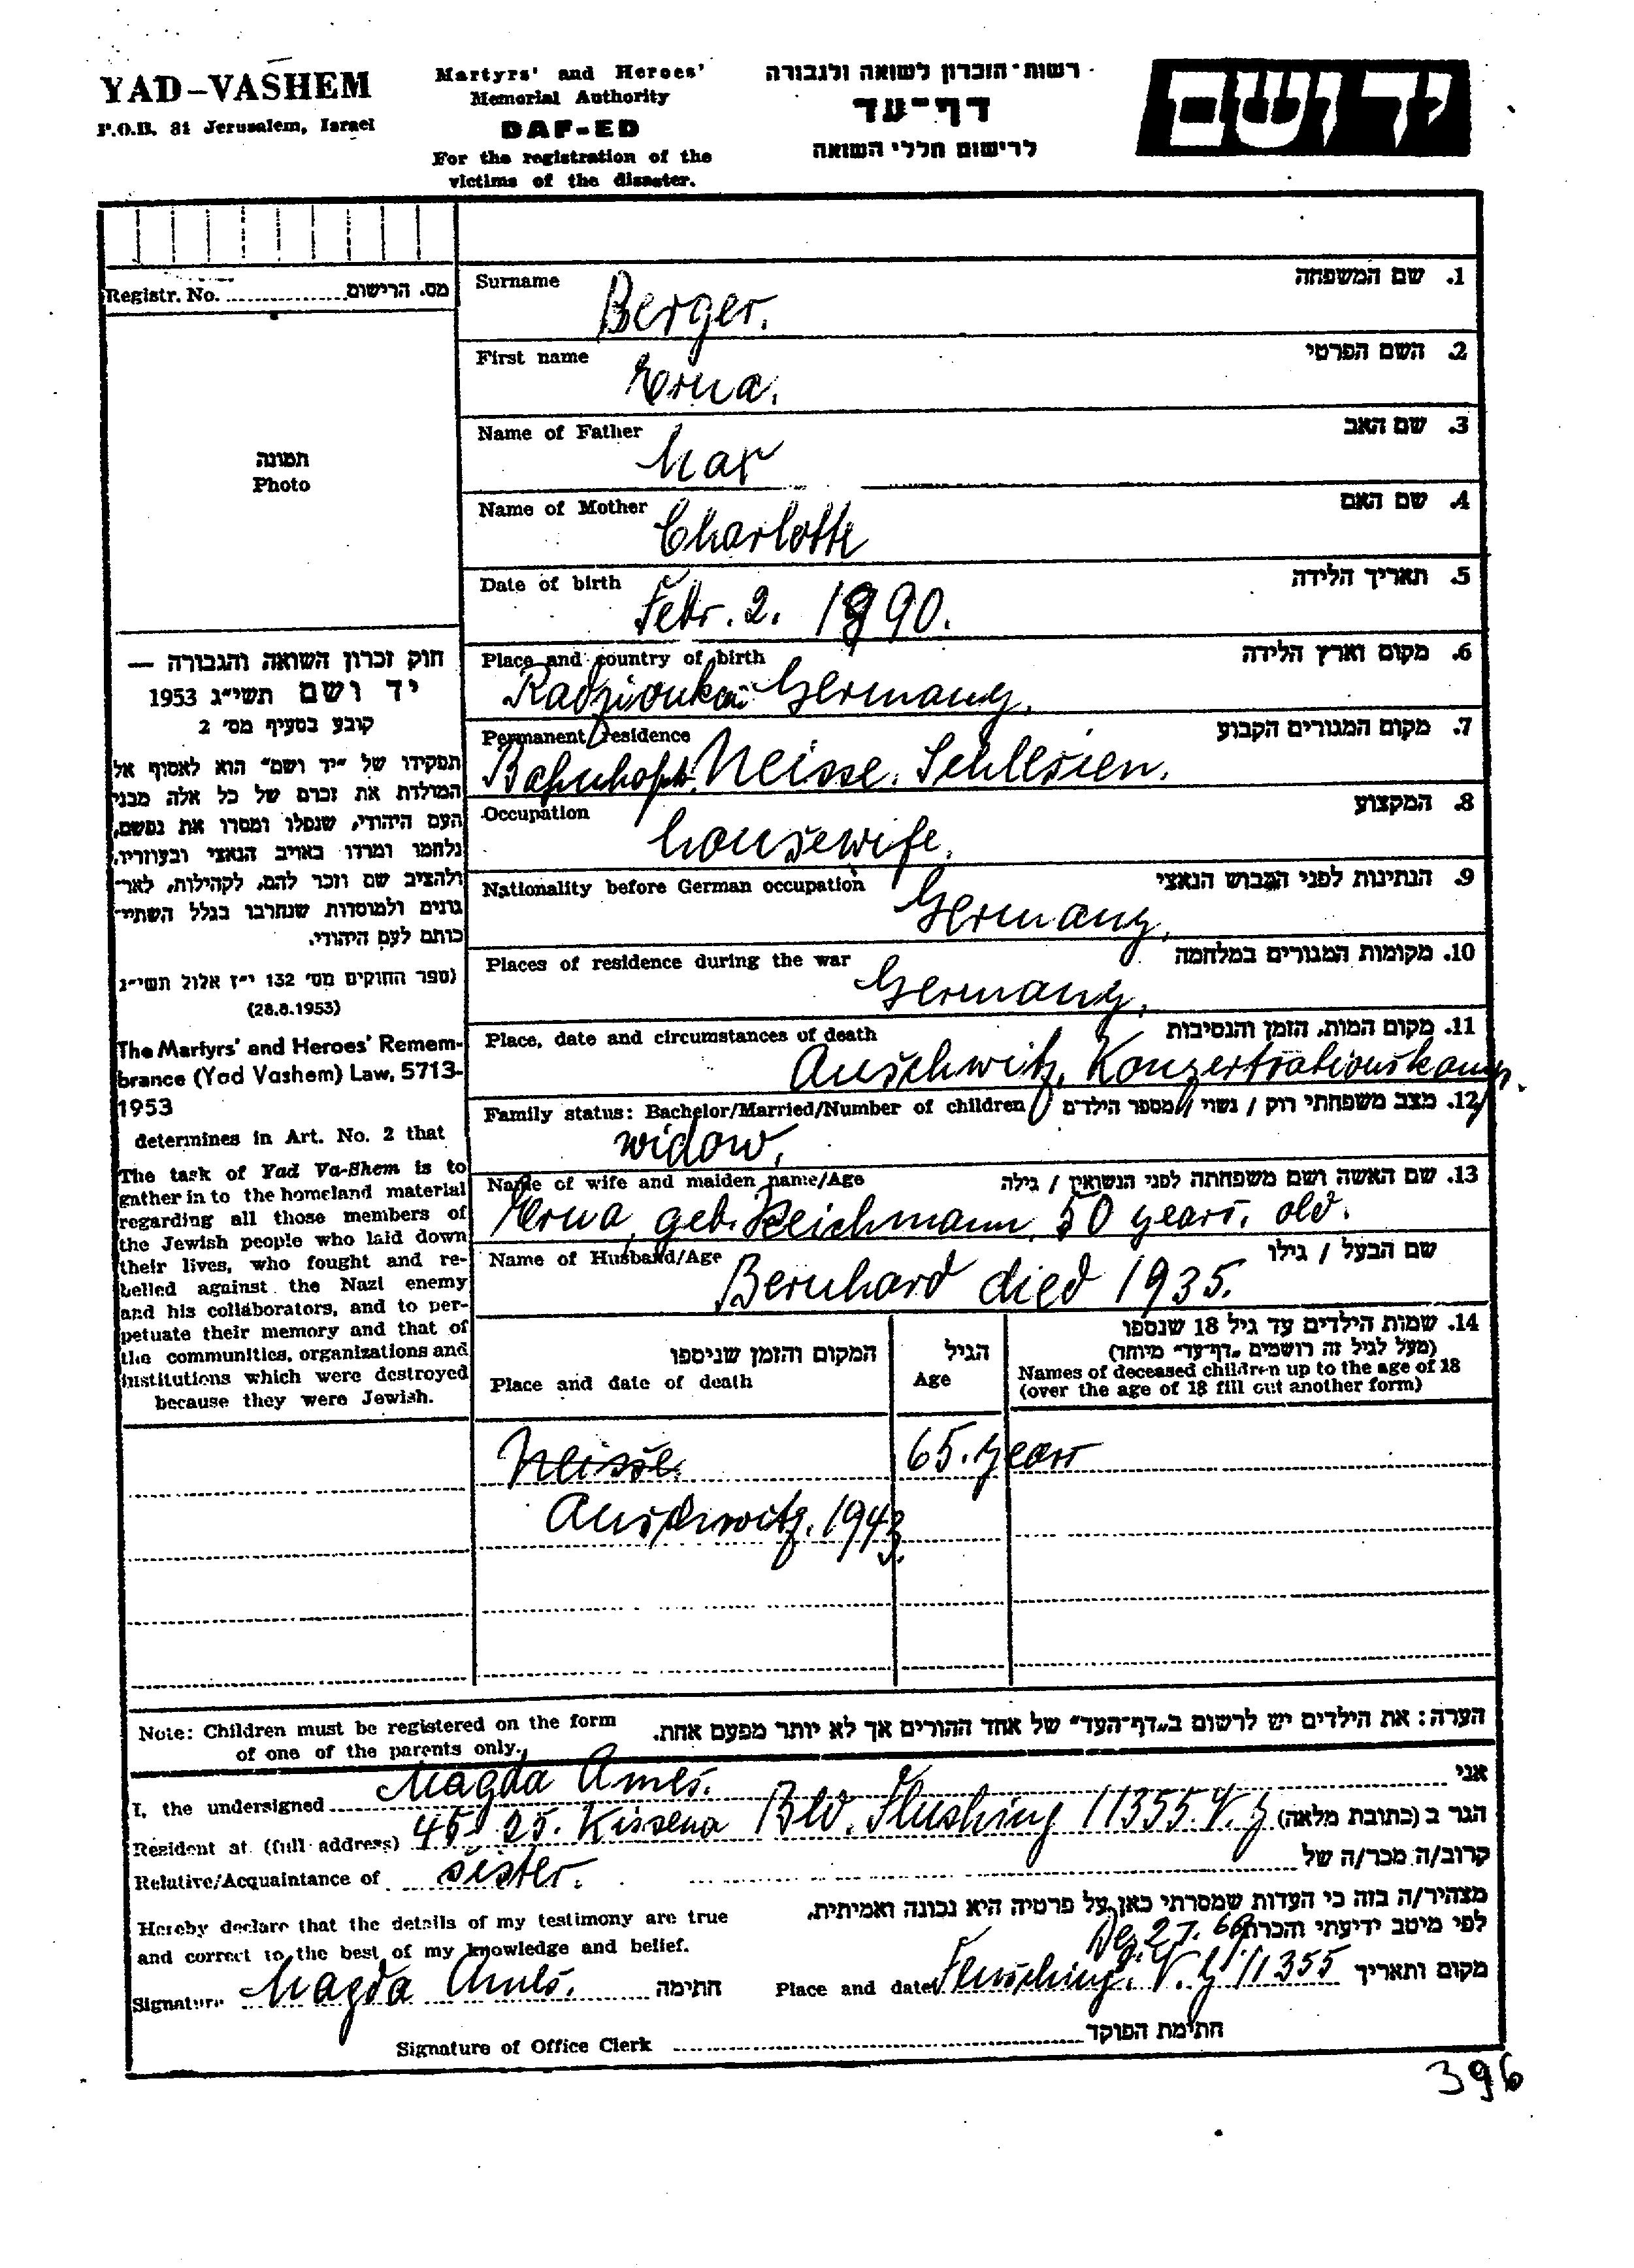 YAD-VASHEM
P.O.B. 84 Jerusalem, Israel
Martyrs' and Heroes'
Memorial Authority
DAF-ED
For the registration of the
victims of the disaster.
רשות־הזכרון לשואה ולגבורה
דף־עד
לרישום חללי השואה
יד ושם
Registr. No. מס. הרישום
תמונה
Photo
חוק זכרון השואה והגבורה —
יד ושם תשי״ג 1953
קובע בסעיף מס׳ 2
תפקידו של ״יד ושם״ הוא לאסוף אל
המולדת את זכרם של כל אלה מבני
העם היהודי, שנפלו ומסרו את נפשם,
נלחמו ומרדו באויב הנאצי ובעוזריו,
ולהציב שם וזכר להם, לקהילות, לאר־
גונים ולמוסדות שנחרבו בגלל השתיי־
כותם לעם היהודי.
(ספר החוקים מס׳ 132 י״ז אלול תשי״ג
(28.8.1953)
The Martyrs' and Heroes' Remem-
brance (Yad Vashem) Law, 5713-
1953
determines in Art. No. 2 that
The task of Yad Va-Shem is to
gather in to the homeland material
regarding all those members of
the Jewish people who laid down
their lives, who fought and re-
belled against the Nazi enemy
and his collaborators, and to per-
petuate their memory and that of
the communities, organizations and
institutions which were destroyed
because they were Jewish.
Surname 1. שם המשפחה
Berger.
First name 2. השם הפרטי
Erna.
Name of Father 3. שם האב
Max
Name of Mother 4. שם האם
Charlotte
Date of birth 5. תאריך הלידה
Febr. 2. 1890.
Place and country of birth 6. מקום וארץ הלידה
Radzionkau Germany.
Permanent residence 7. מקום המגורים הקבוע
Neisse. Schlesien.
Occupation 8. המקצוע
housewife.
Nationality before German occupation 9. הנתינות לפני הכבוש הנאצי
Germany.
Places of residence during the war 10. מקומות המגורים במלחמה
Germany.
Place, date and circumstances of death 11. מקום המות, הזמן והנסיבות
Auschwitz, Konzertrationskamp.
Family status: Bachelor/Married/Number of children 12. מצב משפחתי רוק / נשוי / מספר הילדים
widow.
Name of wife and maiden name/Age 13. שם האשה ושם משפחתה לפני הנשואין / גילה
Erna, geb. Reichmann, 50 years. old.
Name of Husband/Age שם הבעל / גילו
Bernhard died 1935.
המקום והזמן שניספו
Place and date of death
הגיל
Age
14. שמות הילדים עד גיל 18 שנספו
(מעל לגיל זה רושמים ״דף־עד״ מיוחד)
Names of deceased children up to the age of 18
(over the age of 18 fill out another form)
Neisse. 65. years
Auschwitz. 1943.
Note: Children must be registered on the form
of one of the parents only.
הערה: את הילדים יש לרשום ב״דף־העד״ של אחד ההורים אך לא יותר מפעם אחת.
I, the undersigned Magda Ames. אני
Resident at (full address) 45-25. Kissena Blv. Flushing 11355. N.Y הגר ב (כתובת מלאה)
Relative/Acquaintance of sister. קרוב/ה מכר/ה של
Hereby declare that the details of my testimony are true
and correct to the best of my knowledge and belief.
מצהיר/ה בזה כי העדות שמסרתי כאן על פרטיה היא נכונה ואמיתית,
לפי מיטב ידיעתי והכרתי.
Signature Magda Ames. חתימה Place and date Flusching. N.Y 11355 מקום ותאריך
Signature of Office Clerk חתימת הפוקד
396